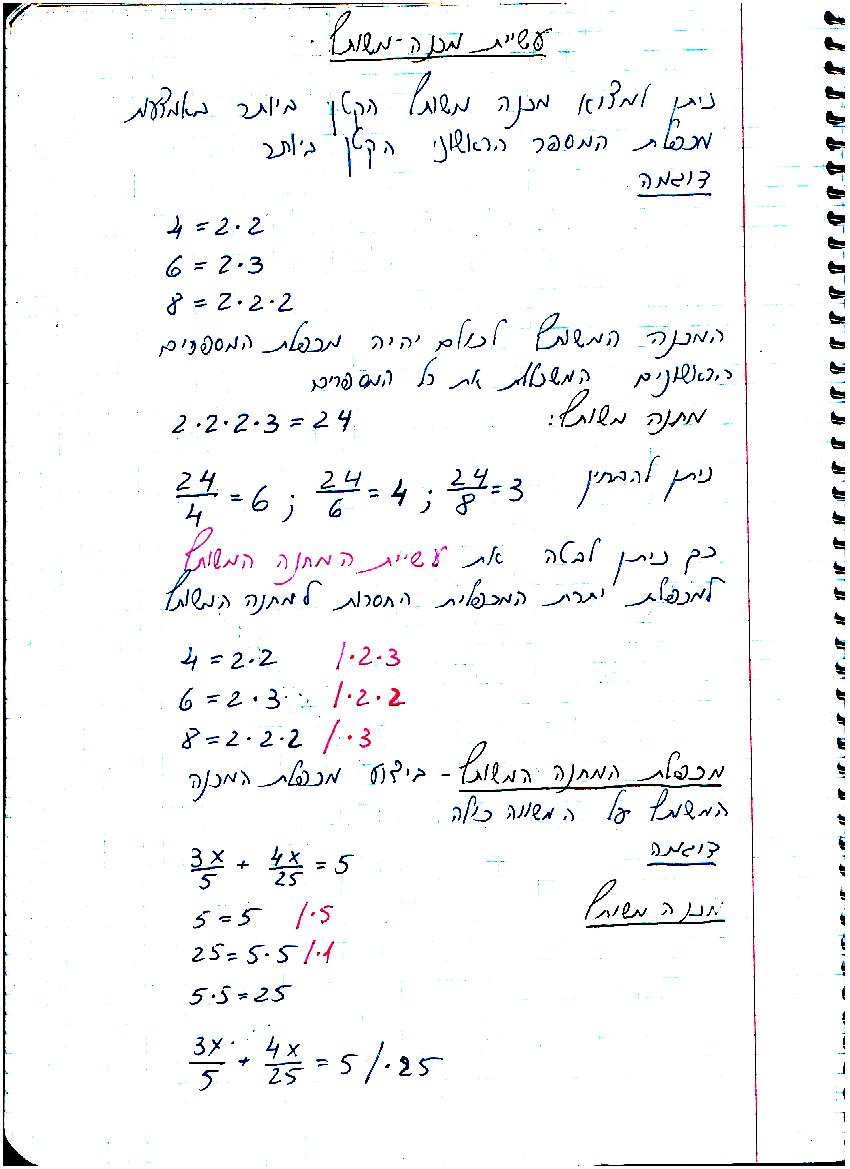 עשיית מכנה-משותף.
ניתן למצוא מכנה משותף הקטן ביותר באמצעות
מכפלת המספר הראשוני הקטן ביותר
דוגמה
4 = 2·2
6 = 2·3
8 = 2·2·2
המכנה המשותף לכולם יהיה מכפלת המספרים
הראשונים המשכללות את כל המספרים
מתנה משותף: 2·2·2·3 = 24
ניתן להבחין 24/4 = 6 ; 24/6 = 4 ; 24/8 = 3
כך ניתן לבטה את עשיית המחנה המשותף
למכפלת יתרת המכפלית החסרות למחנה המשותף
4 = 2·2 /·2·3
6 = 2·3 /·2·2
8 = 2·2·2 /·3
מכפלת המחנה המשותף - ביצוע מכפלת המכנה
המשותף על המשוונה כולה
דוגמה
3x/5 + 4x/25 = 5
מכנה משותף
5 = 5 /·5
25 = 5·5 /·1
5·5 = 25
3x/5 + 4x/25 = 5 /·25